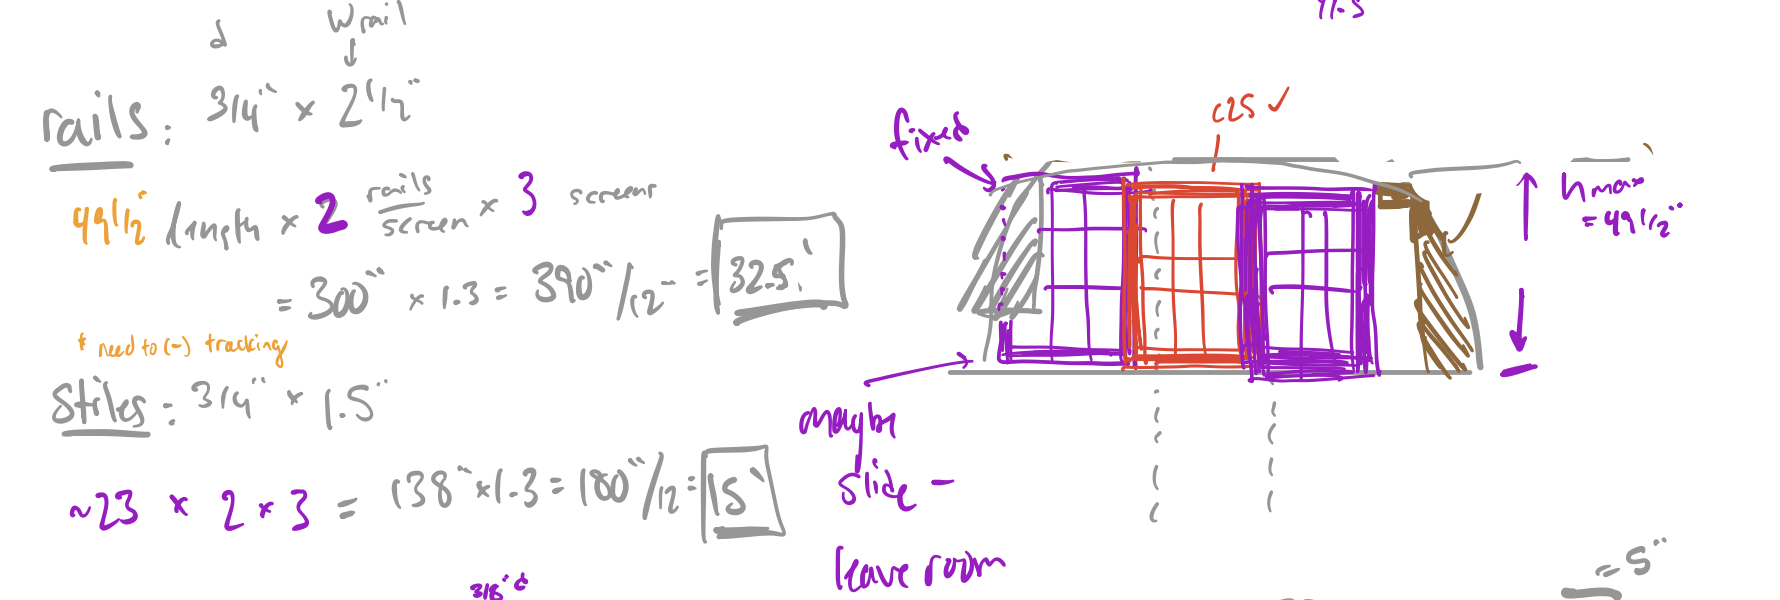 d
Wrail
rails: 3/4" x 2 1/2"
49 1/2" length x 2 rails/screen x 3 screens
= 300" x 1.3 = 390"/12 = 32.5'
* need to (-) tracking
Stiles: 3/4" x 1.5"
~23 x 2 x 3 = 138" x 1.3 = 180"/12 = 15'
3/8"
fixed
c25 ✓
hmax
= 49 1/2"
maybe
slide -
leave room
= 5"